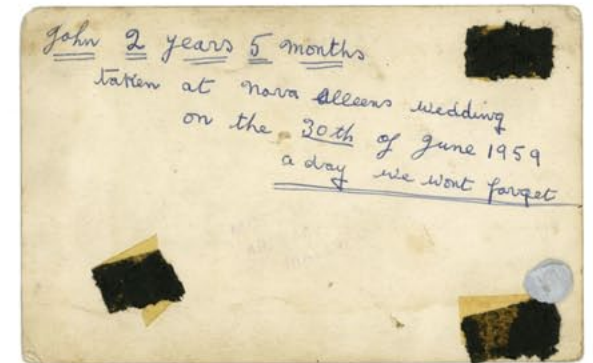 John 2 years 5 months
taken at nova alleens wedding
on the 30th of June 1959
a day we wont forget